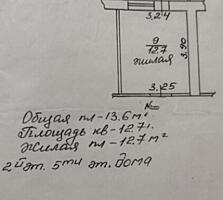 3,24
9
12,7
жилая
3,90
3,25
Общая пл-13.6м²
Площадь кв-12.71
Жилая пл-12.7м²
2й эт. 5ти эт. дома